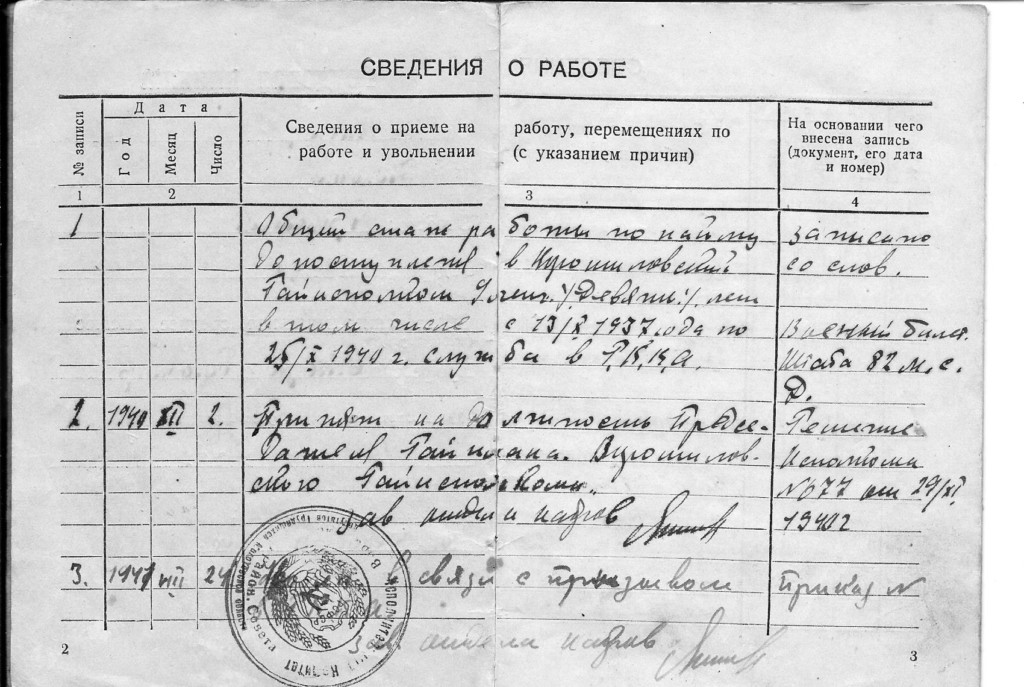 СВЕДЕНИЯ О РАБОТЕ
№ записи
Дата
Год
Месяц
Число
Сведения о приеме на работу, перемещениях по
работе и увольнении (с указанием причин)
На основании чего
внесена запись
(документ, его дата
и номер)
1 2 3 4
1 Общий стаж работы по найму
до поступления в Ворошиловский
Райисполком 9 лет /Девять/ лет
в том числе с 13/X 1937 года по
25/X 1940 г. служба в Р.К.К.А.
записано
со слов.
Военный билет
Штаба 82 м.с.
Д.
2. 1940 XII 2. Принят на должность Предсе-
дателя Райплана Ворошилов-
ского Райисполкома
зав отдела кадров
Решение
Исполкома
№ 77 от 29/XI
1940 г
3. 1941 VII 24 в связи с призывом
зав отдела кадров
Приказ №
2
3